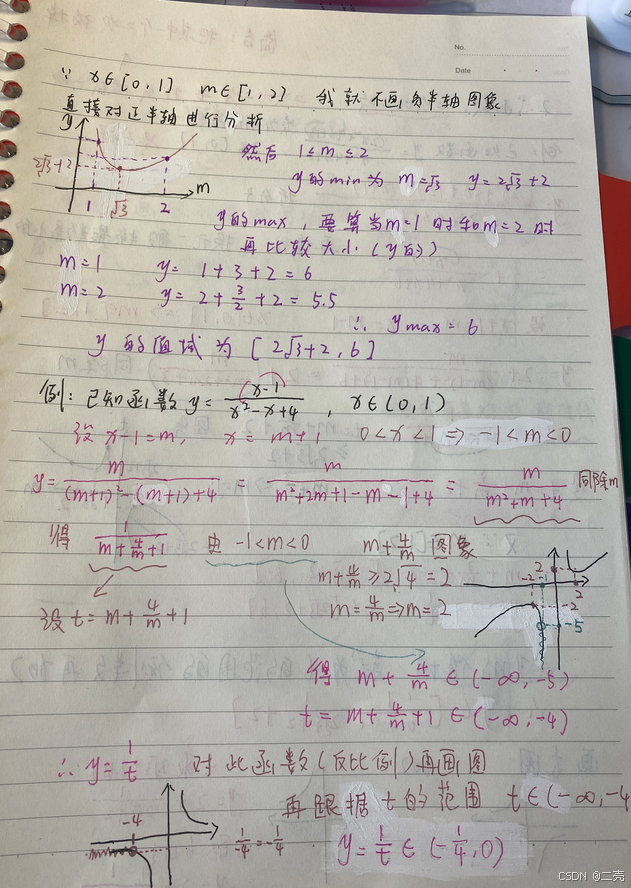 No.
Date
∵ x∈[0,1] m∈[1,2] 我就不画负半轴图象
直接对正半轴进行分析
y
2√3+2
1 √3 2 m
然后 1≤m≤2
y的min为 m=√3 y=2√3+2
y的max，要算当m=1时和m=2时
再比较大小(y的)
m=1 y=1+3+2=6
m=2 y=2+3/2+2=5.5
∴ ymax=6
y的值域为[2√3+2,6]
例：已知函数y=(x-1)/(x²-x+4)，x∈(0,1)
设x-1=m, x=m+1 0<x<1⇒-1<m<0
y=m/((m+1)²-(m+1)+4)=m/(m²+2m+1-m-1+4)=m/(m²+m+4) 同除m
得 1/(m+4/m+1) 由-1<m<0 m+4/m图象
m+4/m≥2√4=2
m=4/m⇒m=2
-2 -1 2 2 -2 -5
设t=m+4/m+1
得 m+4/m∈(-∞,-5)
t=m+4/m+1∈(-∞,-4)
∴y=1/t 对此函数(反比例)再画图
再跟据t的范围 t∈(-∞,-4
-4
1/-4=-1/4 y=1/t∈(-1/4,0)
CSDN @二壳